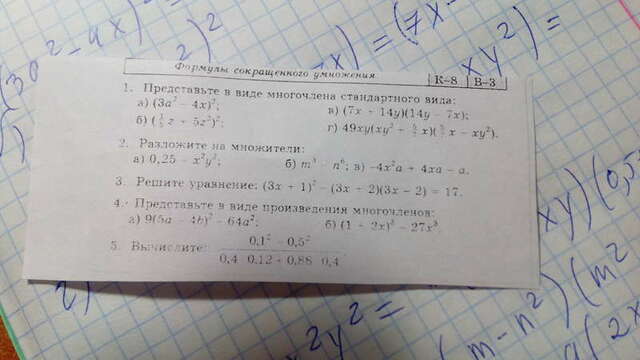 (3a² - 4x)² = (7x -
xy²) =
Формулы сокращенного умножения
К–8 В–3
1. Представьте в виде многочлена стандартного вида:
а) (3a² – 4x)²; в) (7x + 14y)(14y – 7x);
б) ( z + 5z²)²; г) 49xy(xy² + x)( x – xy²).
2. Разложите на множители:
а) 0,25 – x²y²; б) m³ – n⁶; в) –4x²a + 4xa – a.
3. Решите уравнение: (3x + 1)² – (3x + 2)(3x – 2) = 17.
4. Представьте в виде произведения многочленов:
а) 9(5a – 4b)² – 64a²; б) (1 + 2x)³ – 27x³.
5. Вычислите: 0,1² – 0,5²
0,4 · 0,12 + 0,88 · 0,4
xy)(0,5
x²y² =
(m - n²)(m²